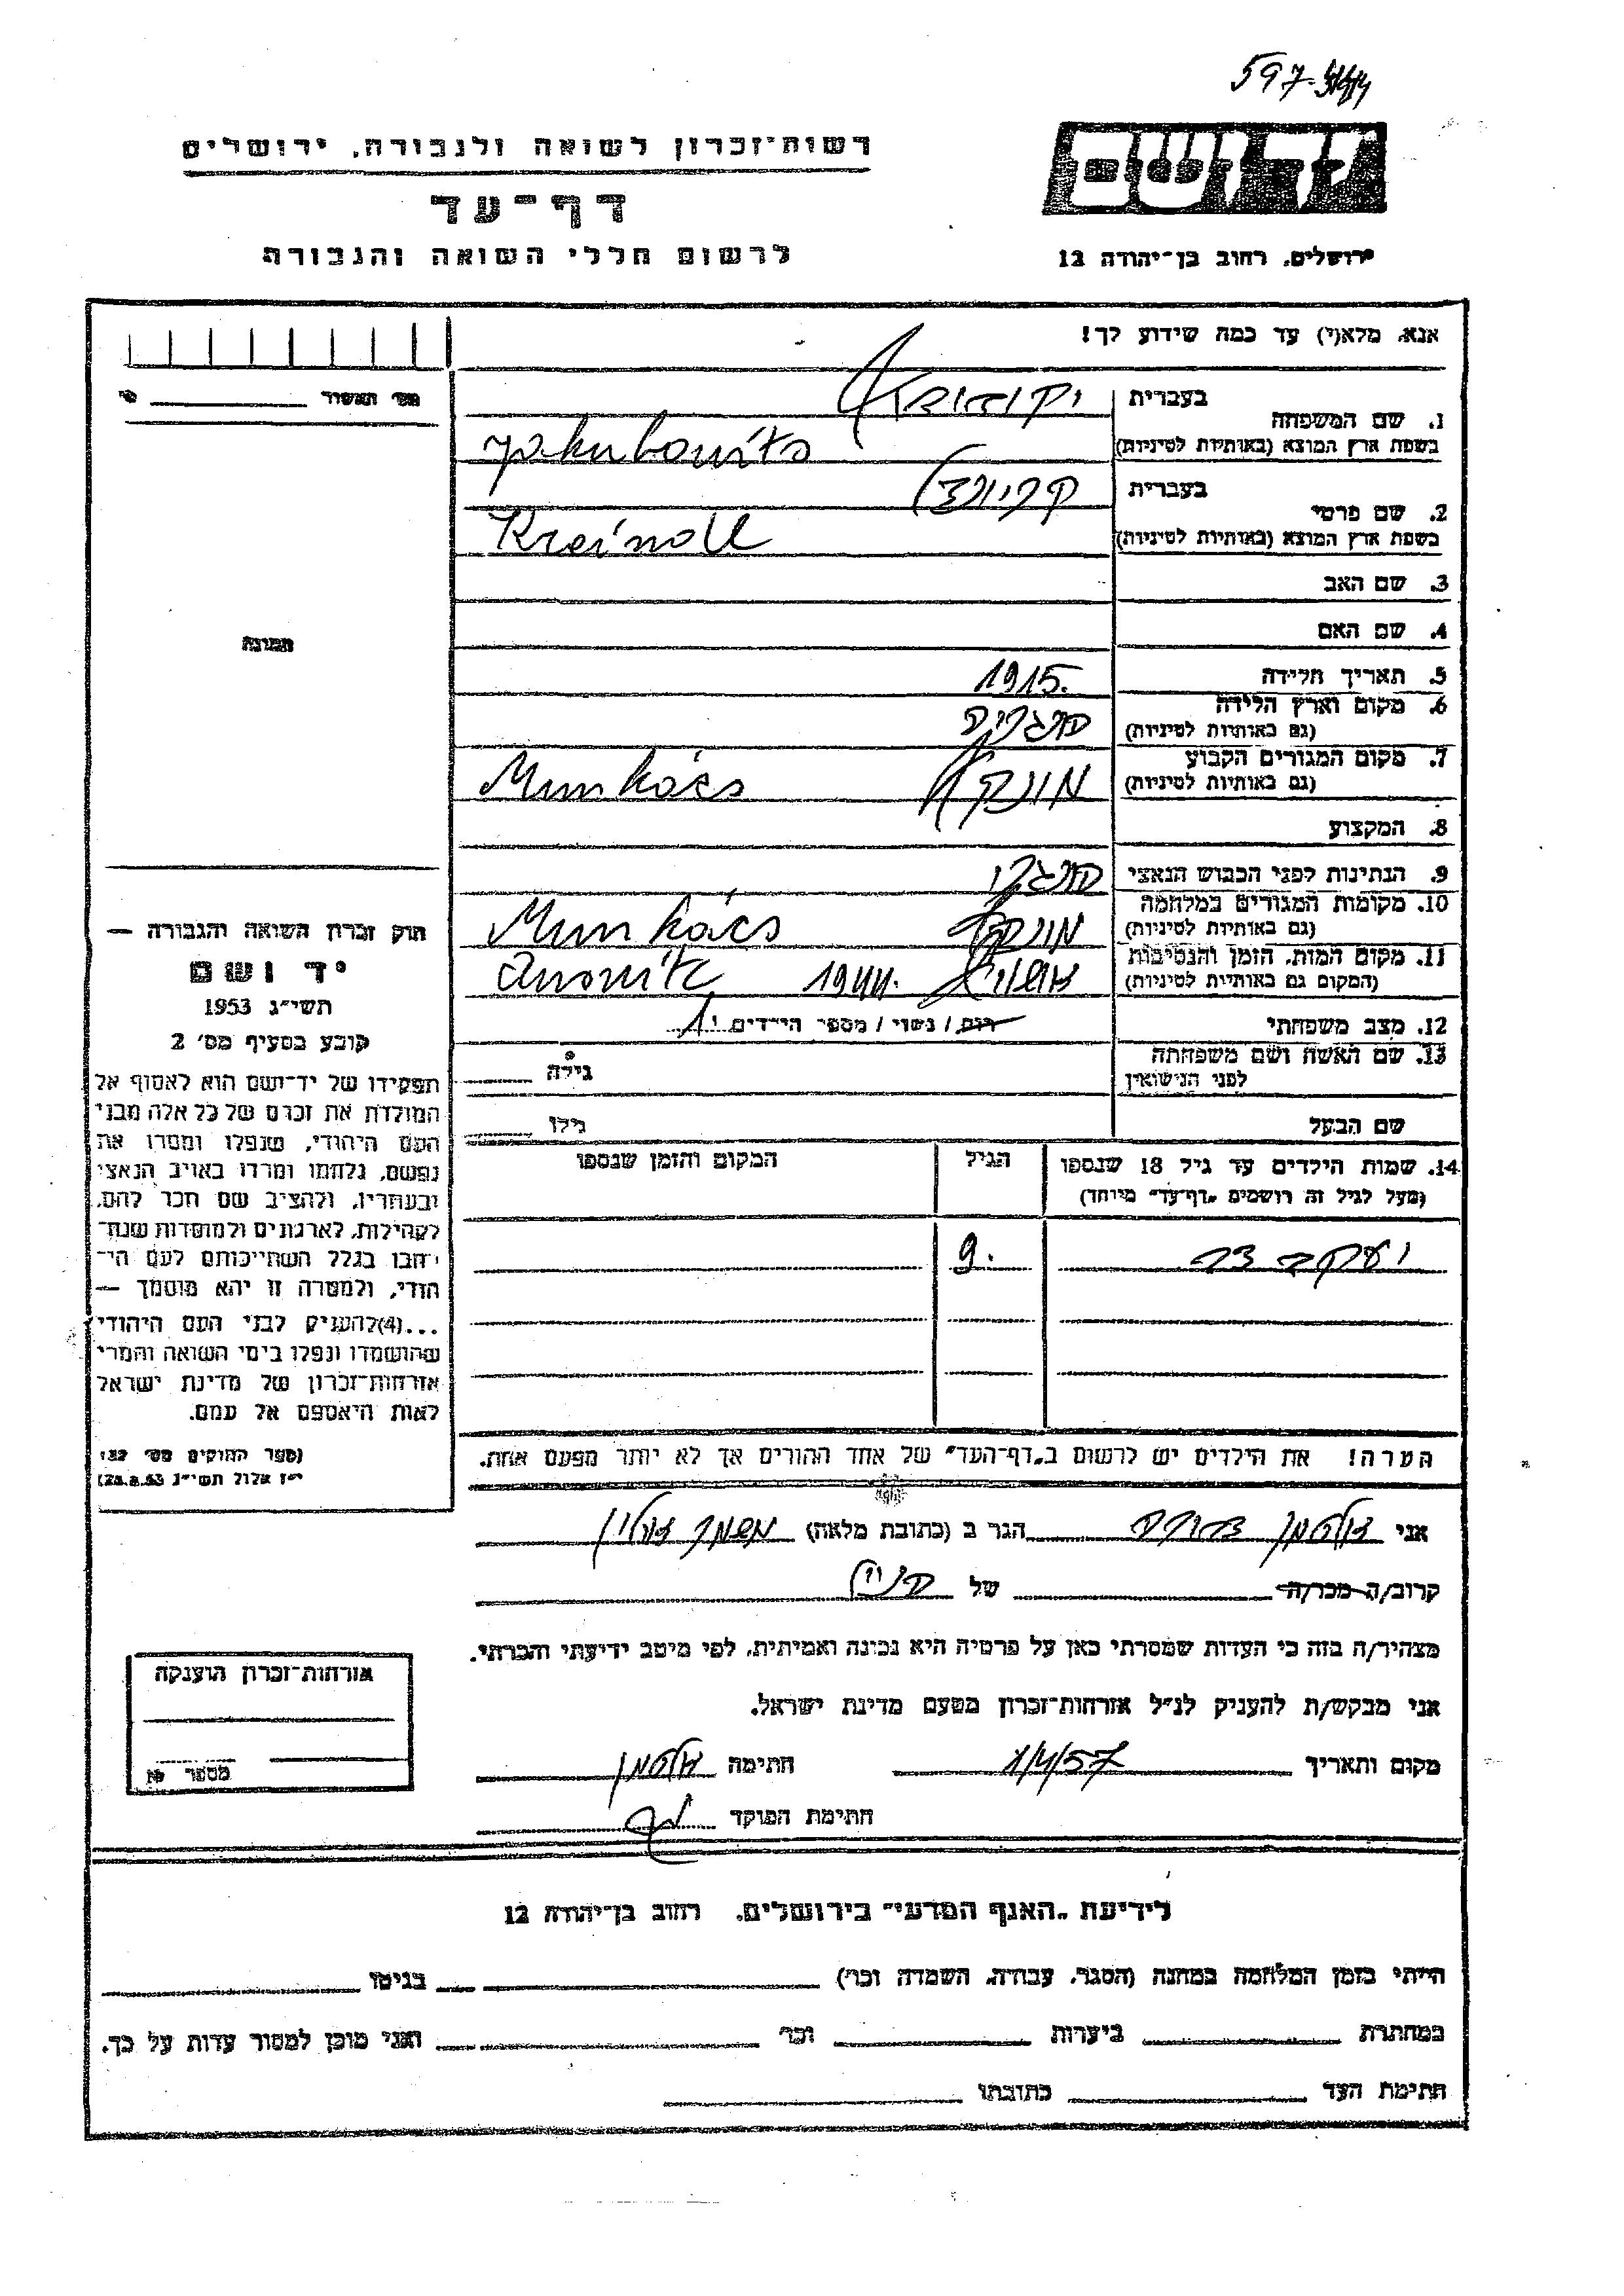 597
רשות־זכרון לשואה ולגבורה, ירושלים
דף־עד
לרשום חללי השואה והגבורה
יד ושם
ירושלים, רחוב בן־יהודה 12
אנא, מלא(י) עד כמה שידוע לך!
מס' תאשור
1. שם המשפחה
בעברית
בשפת ארץ המוצא (באותיות לטיניות) Jakubovits
2. שם פרטי
בעברית
בשפת ארץ המוצא (באותיות לטיניות)
3. שם האב
4. שם האם
5. תאריך הלידה 1915.
6. מקום וארץ הלידה
(גם באותיות לטיניות)
7. מקום המגורים הקבוע
(גם באותיות לטיניות) Munkács
8. המקצוע
9. הנתינות לפני הכבוש הנאצי
10. מקומות המגורים במלחמה
(גם באותיות לטיניות) Munkács
11. מקום המות, הזמן והנסיבות
(המקום גם באותיות לטיניות) 1944.
12. מצב משפחתי רוק / נשוי / מספר הילדים 1
13. שם האשה ושם משפחתה
לפני הנישואין גילה
שם הבעל גילו
14. שמות הילדים עד גיל 18 שנספו הגיל המקום והזמן שנספו
(מעל לגיל זה רושמים "דף־עד" מיוחד)
יעקב צבי 9.
הערה! את הילדים יש לרשום ב"דף־העד" של אחד ההורים אך לא יותר מפעם אחת.
תמונה
חוק זכרון השואה והגבורה —
יד ושם
תשי"ג 1953
קובע בסעיף מס' 2
תפקידו של יד־ושם הוא לאסוף אל
המולדת את זכרם של כל אלה מבני
העם היהודי, שנפלו ומסרו את
נפשם, נלחמו ומרדו באויב הנאצי
ובעוזריו, ולהציב שם וזכר להם,
לקהילות, לארגונים ולמוסדות שנח־
רבו בגלל השתייכותם לעם הי־
הודי, ולמטרה זו יהא מוסמך —
...(4) להעניק לבני העם היהודי
שהושמדו ונפלו בימי השואה והמרי
אזרחות־זכרון של מדינת ישראל
לאות היאספם אל עמם.
(ספר החוקים מס' 132
י"ז אלול תשי"ג 28.8.53)
אני הגר ב (כתובת מלאה)
קרוב/ה מכר/ה של
מצהיר/ה בזה כי העדות שמסרתי כאן על פרטיה היא נכונה ואמיתית, לפי מיטב ידיעתי והכרתי.
אני מבקש/ת להעניק לנ"ל אזרחות־זכרון מטעם מדינת ישראל.
מקום ותאריך 1/4/57 חתימה
חתימת הפוקד
אזרחות־זכרון הוענקה
מספר
לידיעת "האגף המדעי" בירושלים, רחוב בן־יהודה 12
הייתי בזמן המלחמה במחנה (הסגר, עבודה, השמדה וכו') בגיטו
במחתרת ביערות וכו' ואני מוכן למסור עדות על כך.
חתימת העד כתובתו